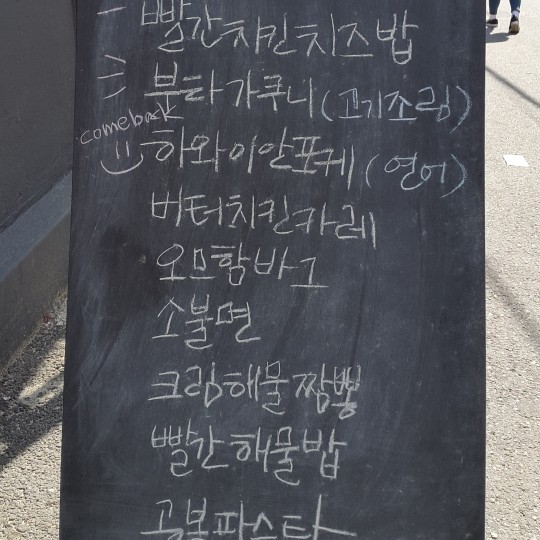 - 빨간치킨치즈밥
부타가쿠니(고기조림)
comeback
하와이안포케(연어)
버터치킨카레
오므함바그
소불면
크림해물짬뽕
빨간해물밥
공봉파스타